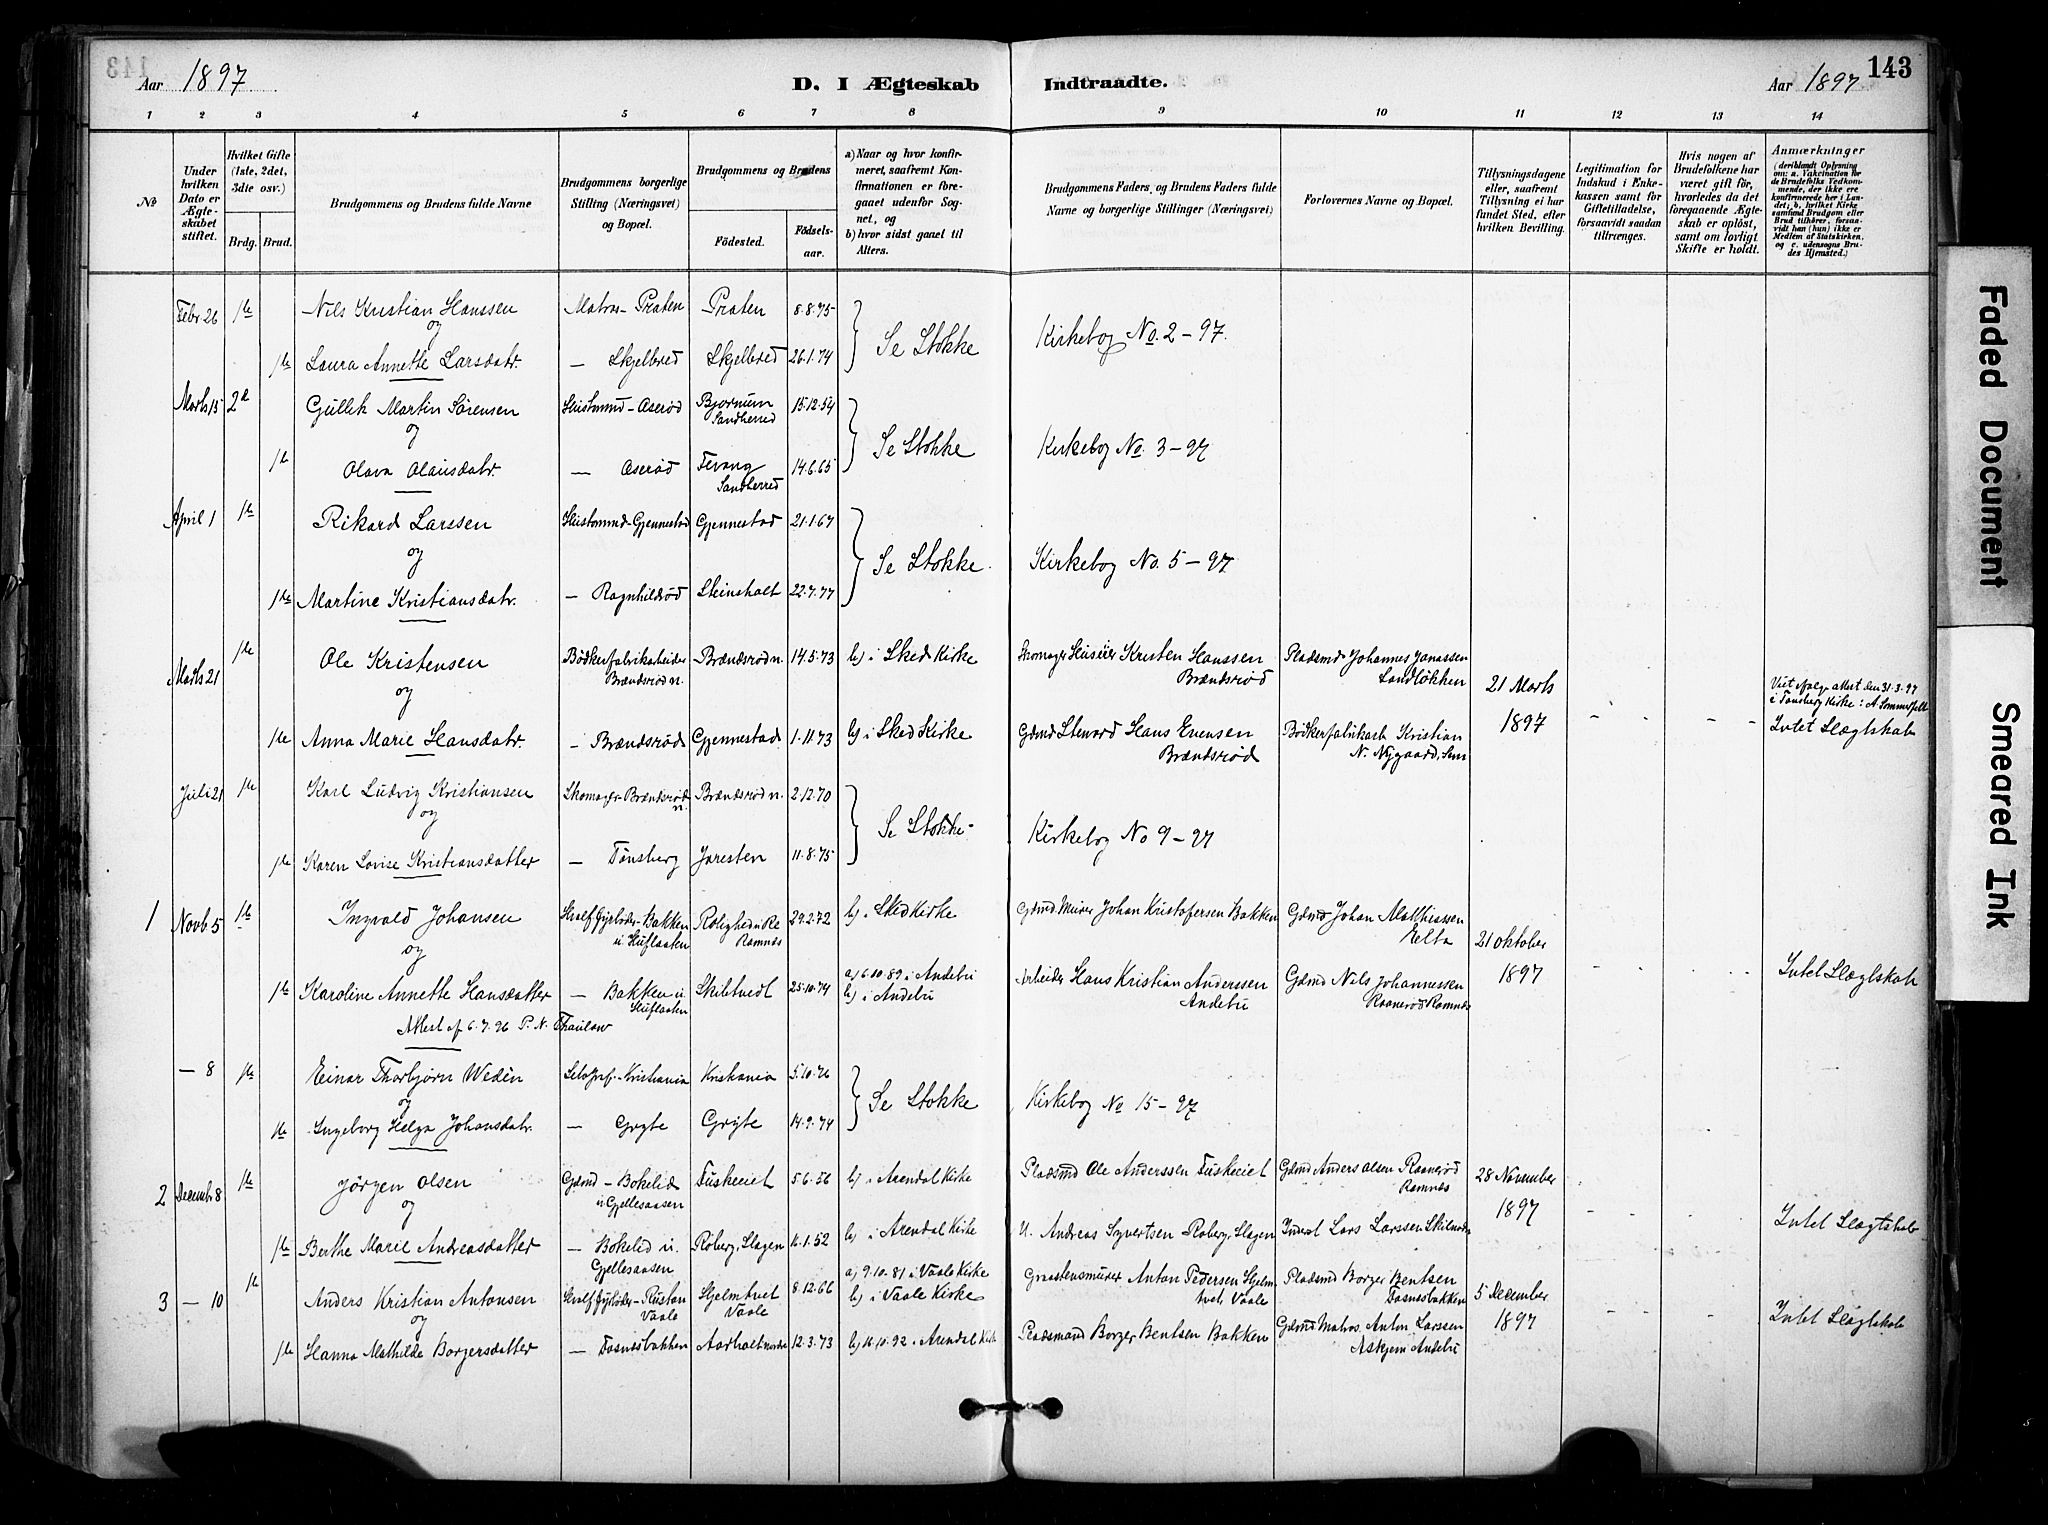 143
Aar 1897
D. I Ægteskab Indtraadte.
Aar 1897
1 2 3 4 5 6 7 8 9 10 11 12 13 14
No
Under hvilken Dato er Ægteskabet stiftet.
Hvilket Gifte (1ste, 2det, 3die osv.)
Brdg. Brud.
Brudgommens og Brudens fulde Navne
Brudgommens borgerlige Stilling (Næringsvei) og Bopæl.
Brudgommens og Brudens
Fødested. Fødselsaar.
a) Naar og hvor konfirmeret, saafremt Konfirmationen er foregaaet udenfor Sognet, og
b) hvor sidst gaaet til Alters.
Brudgommens Faders og Brudens Faders fulde Navne og borgerlige Stillinger (Næringsvei)
Forlovernes Navne og Bopæl.
Tillysningsdagene eller, saafremt Tillysning ei har fundet Sted, efter hvilken Bevilling.
Legitimation for Indskud i Enkekassen samt for Giftetilladelse, forsaavidt saadan tiltrænges.
Hvis nogen af Brudefolkene har været gift før, hvorledes da det foregaaende Ægteskab er opløst, samt om lovligt Skifte er holdt.
Anmærkninger
(deriblandt Oplysning om: a. Vakcination for de Brudefolks Vedkommende, der ikke ere konfirmerede her i Landet; b, hvilket Kirkesamfund Brudgom eller Brud tilhører, forsaavidt han (hun) ikke er Medlem af Statskirken, og c. udensogns Brudes Hjemsted.)
Febr 26 1ste Nils Kristian Hanssen Matros - Praten Praten 8.8.75
og
Se Stokke Kirkebog No. 2 - 97.
1ste Laura Annette Larsdatr. — Skjelbred Skjelbred 26.1.74
Marts 15 2d Gullik Martin Sørensen Husmand - Aserød Bjørnum Sandherred 15.12.54
og
Se Stokke Kirkebog No. 3 - 97
1ste Olava Olausdatr. — Aserød Fevang Sandherred 14.6.65
April 1 1ste Rikard Larssen Husmand - Gjennestad Gjennestad 21.1.67
og
Se Stokke Kirkebog No. 5 - 97
1ste Martine Kristiansdatr. — Ragnhildsrød Steinsholt 22.7.77
Marts 21 1ste Ole Kristensen Bødkerfabrikarbeider Brændsrød n. Brændsrød n. 14.5.73 b) i Skee Kirke Skomager Huseier Kristen Hanssen Brændsrød Pladsmd Johannes Jonassen Sandløkken
og
21 Marts 1897
Viet ifølge attest den 31.3.97 i Tønsberg Kirke: A Sommerfelt
Intet Slægtskab
1ste Anna Marie Hansdatr. — Brændsrød Gjennestad 1.11.73 b) i Skee Kirke Gdmd Stenard Hans Evensen Brændsrød Bødkerfabrikarb Kristian N. Nygaard, Sem
Juli 21 1ste Karl Ludvig Kristiansen Skomager - Brændsrød n. Brændsrød n. 2.12.70
og
Se Stokke Kirkebog No 9 - 97
1ste Karen Lovise Kristiansdatter — Tønsberg Jaresten 11.8.75
1 Novb 5 1ste Ingvald Johansen Hvalf - Bakken u Huflaaten Rolighed i Re Ramnæs 29.2.72 b) i Skee Kirke Gdmd Murer Johan Kristofersen Bakken Gdmd Johan Matthiassen Jelta
og
21 oktober 1897
Intet Slægtskab
1ste Karoline Annette Hansdatter — Bakken u Huflaaten Skiltvedt 25.10.74 a) 6.10.89 i Andebu b) i Andebu Arbeider Hans Kristian Anderssen Andebu Gdmd Nils Johannessen Raanerød Ramnæs
Attest af 6.7.96 P. N. Thaulow
— 8 1ste Einar Thorbjørn Wedén Litograf - Kristiania Kristiania 5.10.76
og
Se Stokke Kirkebog No 15 - 97
1ste Ingeborg Helga Johansdatr. — Gryte Gryte 14.9.74
2 Decemb 8 1ste Jørgen Olsen Gdmd - Bøkelid u Gjellesaasen Fuskeeiet 5.6.56 b) i Arendal Kirke Pladsmd Ole Anderssen Fuskeeiet Gdmd Anders Olsen Raanerød Ramnæs
og
28 November 1897
Intet Slægtskab
1ste Berthe Marie Andreasdatter — Bøkelid u. Gjellesaasen Røberg, Slagen 16.1.52 b) i Arendal Kirke U. Andreas Syvertsen Roberg, Slagen Inderst Lars Larssen
3 — 10 1ste Anders Kristian Antonsen Hvalf - Rustan Vaale Hjelmtvet Vaale 8.12.66 a) 9.10.81 i Vaale Kirke b) i Vaale Kirke Graastensmurer Anton Pedersen Hjelmtvet, Vaale Pladsmd Borger Bentsen Fosnæsbakken
og
5 December 1897
Intet Slægtskab
1ste Hanna Mathilde Borgersdatter — Fosnæsbakken Aarholt nordre 12.3.73 b) 16.10.92 i Arendal Kirke Pladsmand Borger Bentsen Bakken Gdmd Matros Anton Larssen Askjem Andebu
Faded Document
Smeared Ink